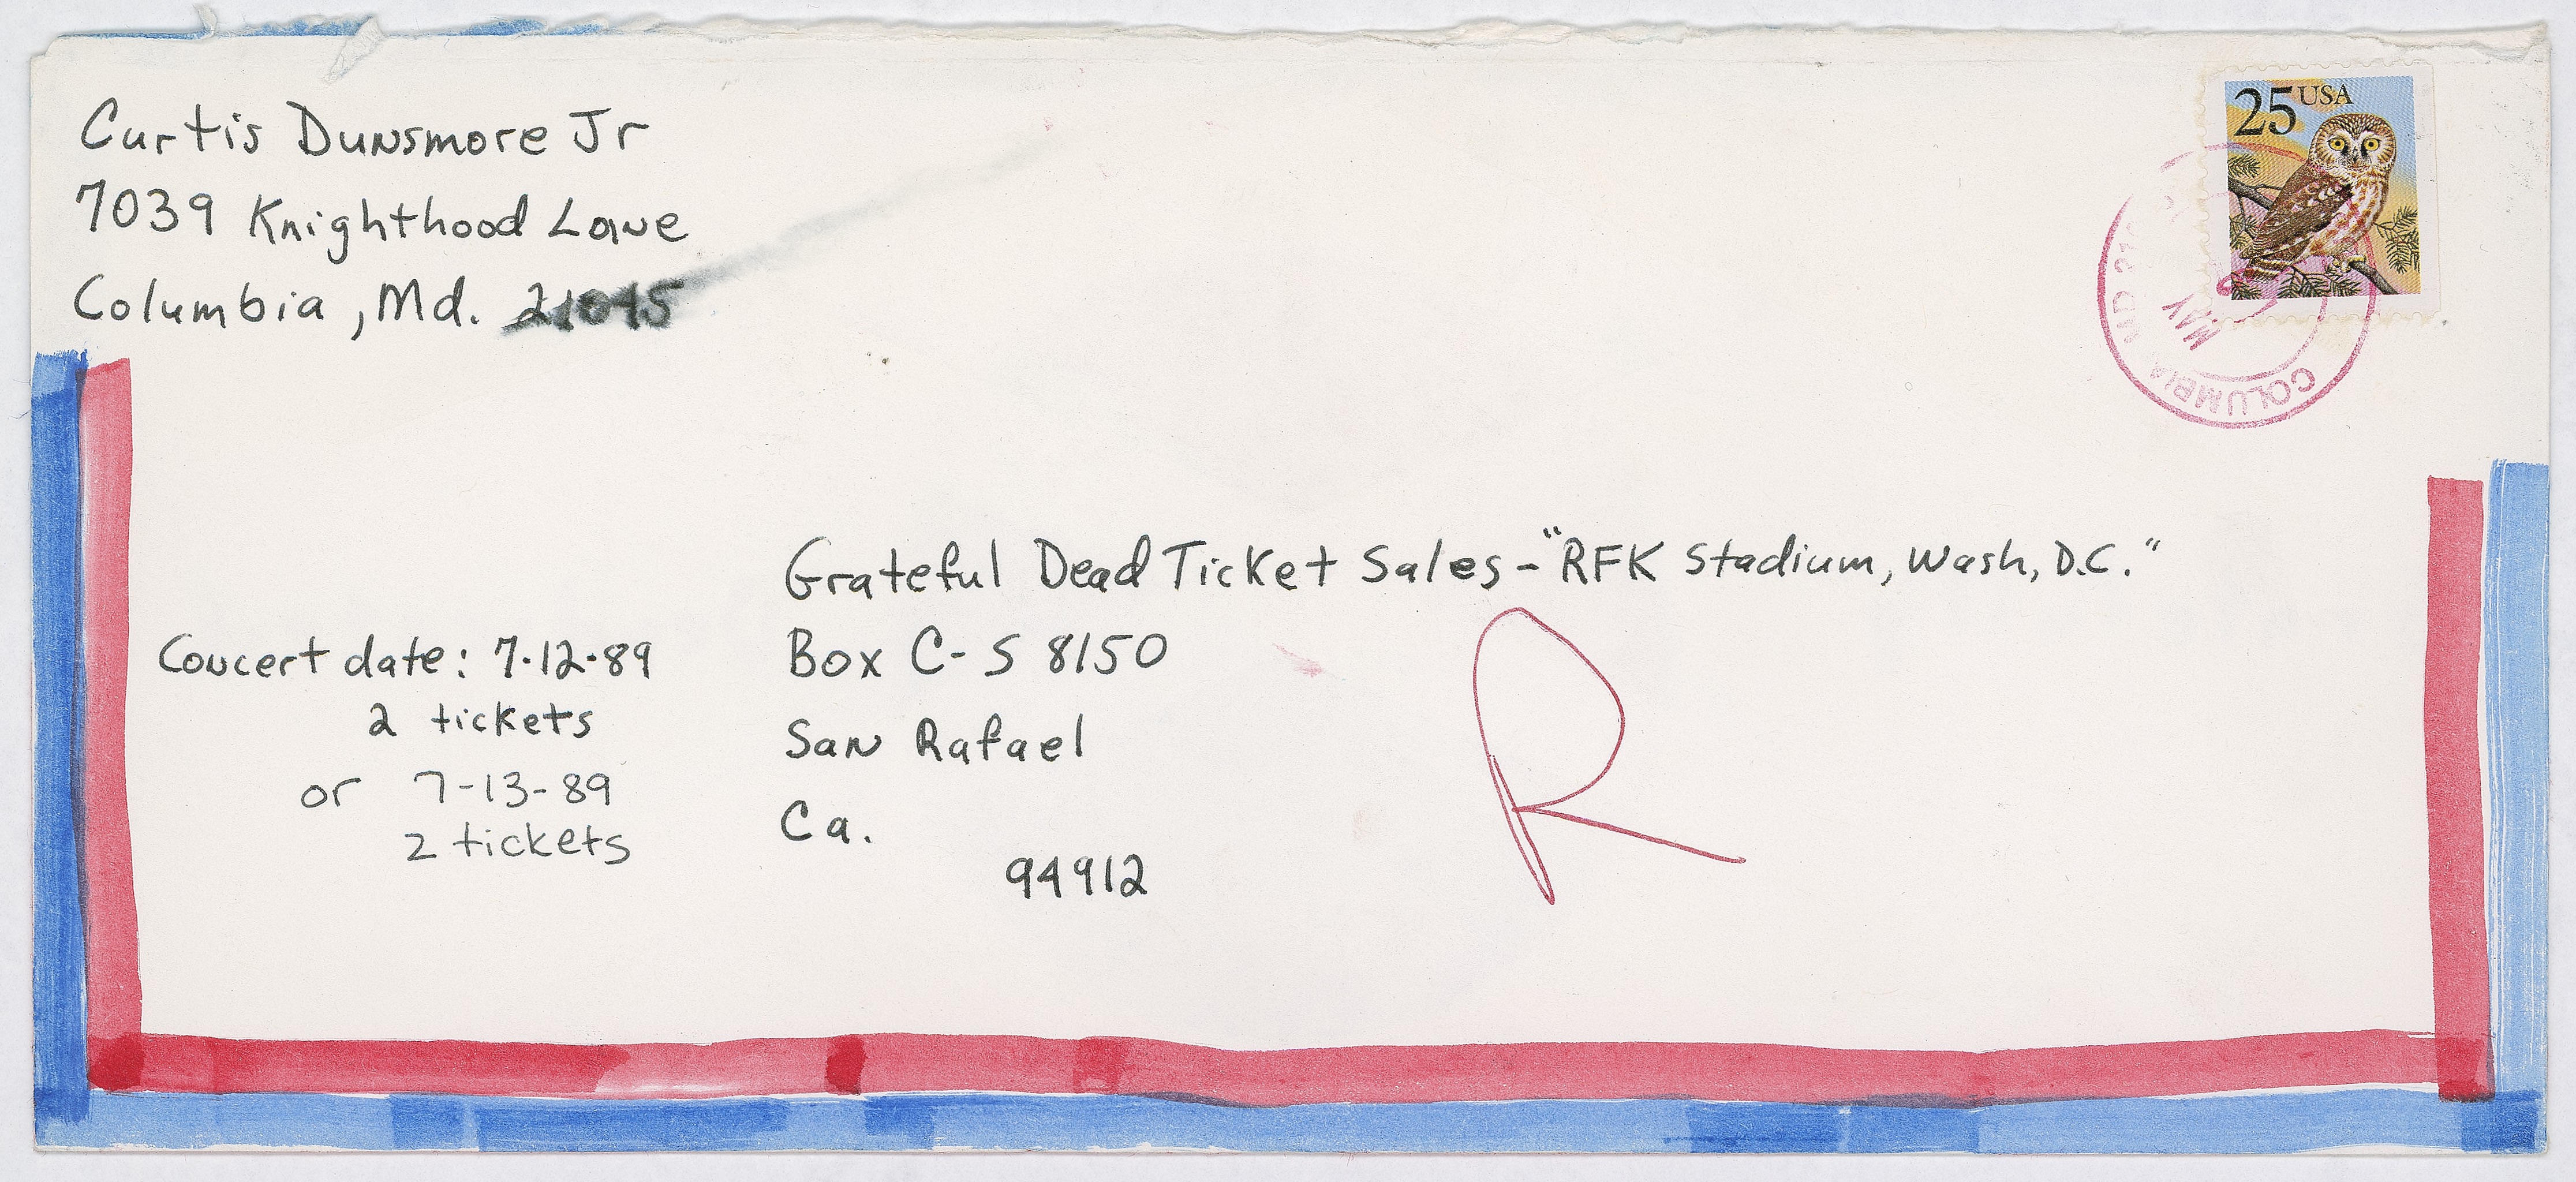 Curtis Dunsmore Jr
7039 Knighthood Lane
Columbia, Md. 21045
25 USA
MAY
COLUMBIA MD
Grateful Dead Ticket Sales - "RFK Stadium, Wash, D.C."
Box C-S 8150
San Rafael
Ca.
94912
R
Concert date: 7·12·89
2 tickets
or 7-13-89
2 tickets